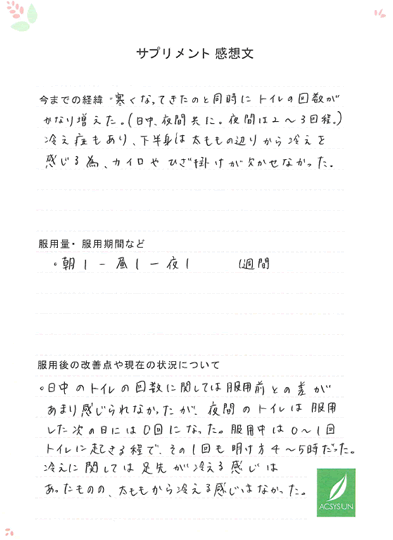 サプリメント 感想文
今までの経緯 ・寒くなってきたのと同時に トイレの回数が
かなり増えた。(日中、夜間共に。夜間は2〜3回程。)
冷え症もあり、下半身は太ももの辺りから冷えを
感じる為、カイロや ひざ掛けが欠かせなかった。
服用量・服用期間など
・朝1 - 昼1 - 夜1 1週間
服用後の改善点や現在の状況について
・日中のトイレの回数に関しては服用前との差が
あまり感じられなかったが、夜間のトイレは服用
した次の日には0回になった。服用中は0〜1回
トイレに起きる程で、その1回も明け方4〜5時だった。
冷えに関しては足先が冷える感じは
あったものの、太ももから冷える感じはなかった。
ACSYSUN